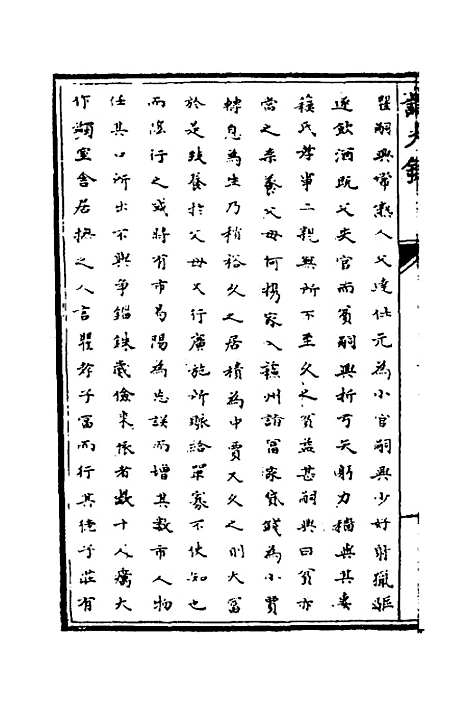 瞿嗣興常熟人父達仕元為小官嗣興少好射獵驅
逐飲酒既父失官而貧嗣興折弓矢躬力穡與其妻
蘓氏孝事二親無所不至久之貧益甚嗣興曰貧亦
當之奈養父母何携家入蘓州諸冨家貸錢為小賈
轉息為生乃稍裕久之居積為中賈又久之則大冨
於是致養於父母又行廣施所賑給單寡不使知也
而陰行之或將有市易陽為忘誤而增其數市人物
任其口所出不與爭錙銖歲儉來依者數十人為大
作顙室舍居拱之人言瞿孝子冨而行其德子莊有